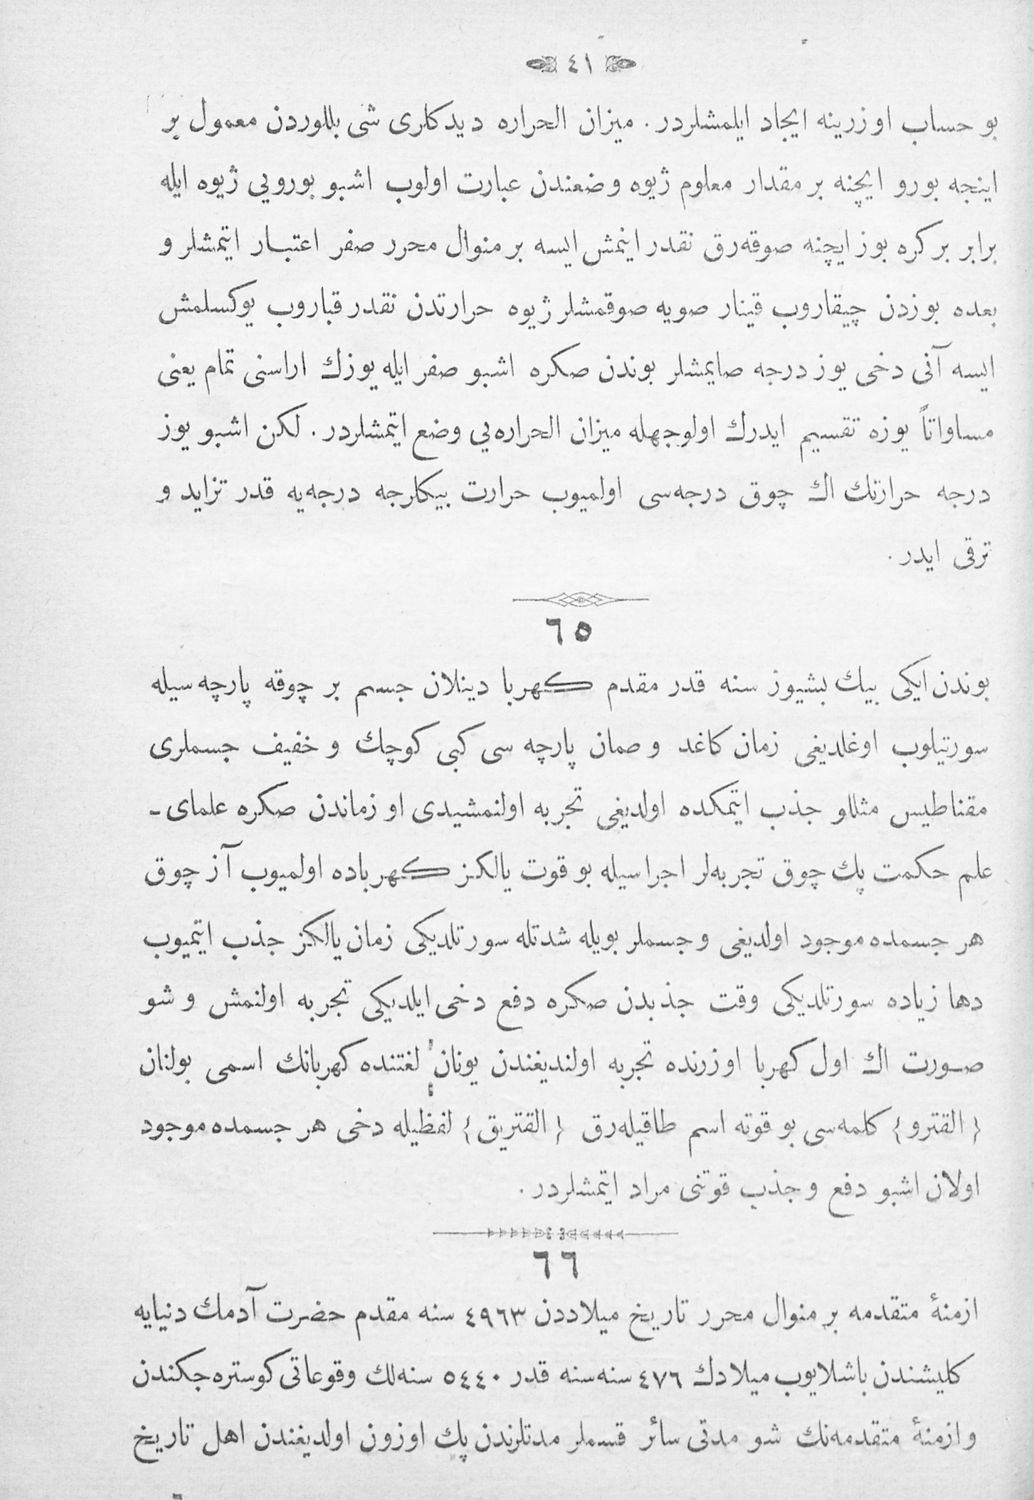 ٤١
بو حساب اوزرينه ايجاد ايلمشلردر. ميزان الحراره ديدكلرى شى بللوردن معمول بر
اينجه بورو ايچنه بر مقدار معلوم ژيوه وضعندن عبارت اولوب اشبو بورويى ژيوه ايله
برابر بر كره بوز ايچنه صوقه‌رق نقدر اينمش ايسه بر منوال محرر صفر اعتبار ايتمشلر و
بعده بوزدن چيقاروب قينار صويه صوقمشلر ژيوه حرارتدن نقدر قباروب يوكسلمش
ايسه آنى دخى يوز درجه صايمشلر بوندن صكره اشبو صفر ايله يوزك اراسنى تمام يعنى
مساواتاً يوزه تقسيم ايدرك اولوجهله ميزان الحراره‌يى وضع ايتمشلردر. لكن اشبو يوز
درجه حرارتك اك چوق درجه‌سى اولميوب حرارت بيكلرجه درجه‌يه قدر تزايد و
ترقى ايدر.
٦٥
بوندن ايكى بيك بشيوز سنه قدر مقدم كهربا دينلان جسم بر چوقه پارچه سيله
سورتيلوب اوغلديغى زمان كاغد و صمان پارچه سى كبى كوچك و خفيف جسملرى
مقناطيس مثللو جذب ايتمكده اولديغى تجربه اولنمشيدى او زماندن صكره علماى ـ
علم حكمت پك چوق تجربه‌لر اجراسيله بو قوت يالكز كهرباده اولميوب آز چوق
هر جسمده موجود اولديغى و جسملر بويله شدتله سورتلديكى زمان يالكز جذب ايتميوب
دها زياده سورتلديكى وقت جذبدن صكره دفع دخى ايلديكى تجربه اولنمش و شو
صورت اك اول كهربا اوزرنده تجربه اولنديغندن يونان لغتنده كهربانك اسمى بولنان
{القترو} كلمه‌سى بو قوته اسم طاقيله‌رق {القتريق} لفظيله دخى هر جسمده موجود
اولان اشبو دفع و جذب قوتنى مراد ايتمشلردر.
٦٦
ازمنهٔ متقدمه بر منوال محرر تاريخ ميلاددن ٤٩٦٣ سنه مقدم حضرت آدمك دنيايه
كليشندن باشلايوب ميلادك ٤٧٦ سنه‌سنه قدر ٥٤٤٠ سنه‌لك وقوعاتى كوستره‌جكندن
و ازمنهٔ متقدمه‌نك شو مدتى سائر قسملر مدتلرندن پك اوزون اولديغندن اهل تاريخ